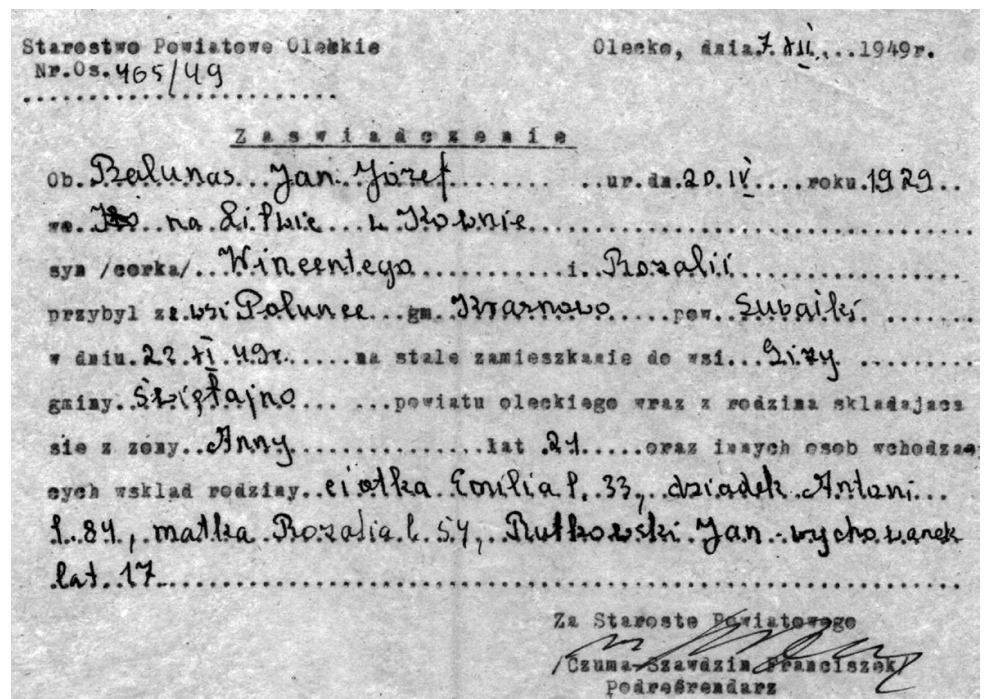 Starostwo Powiatowe Oleckie Olecko, dnia.7.XII...1949r.
Nr.Os.465/49
Zaswiadczenie
Ob. Balunas...Jan..Józef..........ur.dn.20.IV....roku.1929..
we. na Litwie... w Kownie
syn /corka/..Wincentego..............i..Rozalii
przybyl ze.wsi Polunce...gm.Krasnowo....pow..Suwałki
w dniu.22.XI.49r.....na stale zamieszkanie do wsi...Giży.........
gminy..Świętajno.... ...powiatu oleckiego wraz z rodzina skladajaca
sie z zony..Anny..............lat.21.....oraz innych osob wchodza-
cych wsklad rodziny..ciotka.Emilia l..33,.dziadek.Antoni...
l.84,.matka.Rozalia.l.54,..Rutkowski.Jan.-wychowanek
lat.17
Za Staroste Powiatowego
/Czuma-Szawdzin Franciszek/
Podreferendarz